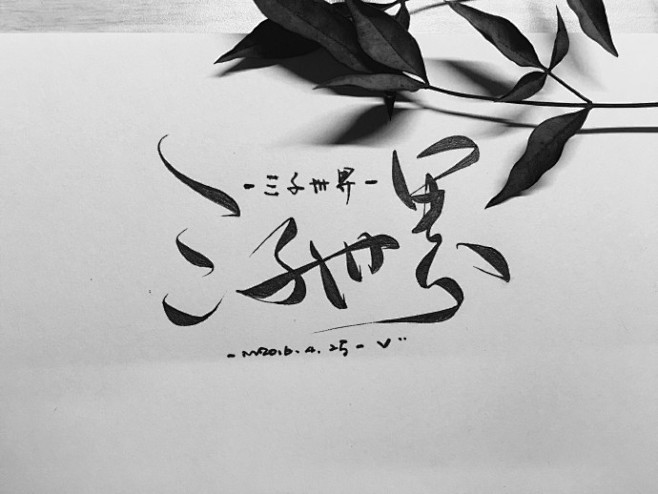 -三子世界-
三子世界
-M2016.4.25- V